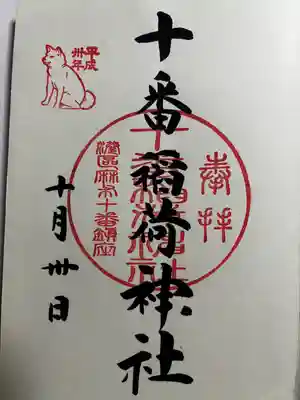 奉拝
十番稲荷神社
十番稲荷神社
港区麻布十番鎮座
平成
卅年
十月卅日